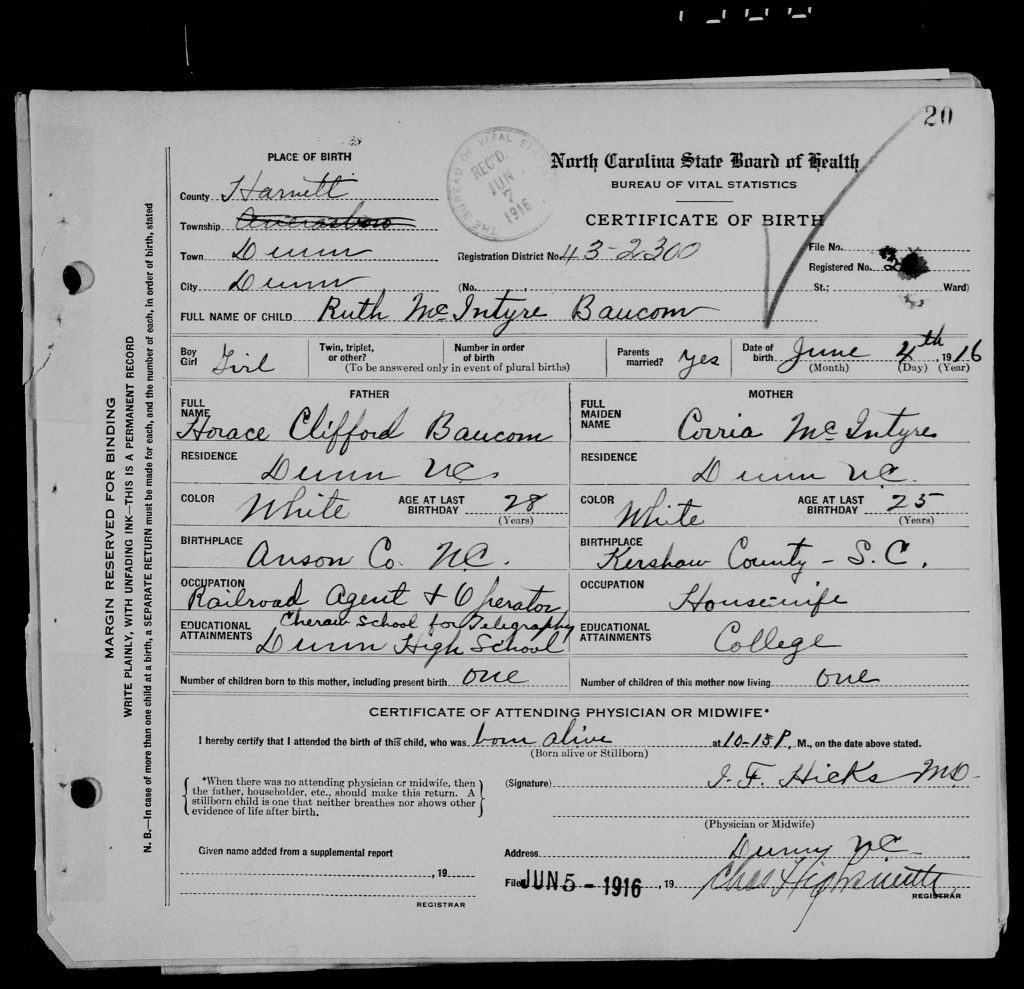 20
PLACE OF BIRTH
County Harnett
Township Averasboro
Town Dunn
City Dunn
THE BUREAU OF VITAL
REC'D.
JUN
7
1916
North Carolina State Board of Health
BUREAU OF VITAL STATISTICS
CERTIFICATE OF BIRTH
Registration District No. 43-2300
File No.
Registered No.
(No. St.; Ward)
FULL NAME OF CHILD Ruth McIntyre Baucom
Boy Girl Girl
Twin, triplet, or other?
Number in order of birth
(To be answered only in event of plural births)
Parents married? yes
Date of birth June 4th, 1916
(Month) (Day) (Year)
FATHER
FULL NAME
Horace Clifford Baucom
RESIDENCE
Dunn N.C.
COLOR White AGE AT LAST BIRTHDAY 28
(Years)
BIRTHPLACE
Anson Co. N.C.
OCCUPATION
Railroad Agent & Operator
EDUCATIONAL ATTAINMENTS
Cheraw School for Telegraphy
Dunn High School
Number of children born to this mother, including present birth one
MOTHER
FULL MAIDEN NAME
Corria McIntyre
RESIDENCE
Dunn N.C.
COLOR White AGE AT LAST BIRTHDAY 25
(Years)
BIRTHPLACE
Kershaw County - S.C.
OCCUPATION
Housewife
EDUCATIONAL ATTAINMENTS
College
Number of children of this mother now living one
CERTIFICATE OF ATTENDING PHYSICIAN OR MIDWIFE*
I hereby certify that I attended the birth of this child, who was born alive at 10-15 P. M., on the date above stated.
(Born alive or Stillborn)
*When there was no attending physician or midwife, then
the father, householder, etc., should make this return. A
stillborn child is one that neither breathes nor shows other
evidence of life after birth.
(Signature) I. F. Hicks MD
(Physician or Midwife)
Given name added from a supplemental report
, 19
REGISTRAR
Address Dunn, N.C.
Filed JUN 5 - 1916, 19 Chas Highsmith
REGISTRAR
MARGIN RESERVED FOR BINDING
WRITE PLAINLY, WITH UNFADING INK—THIS IS A PERMANENT RECORD
N. B.—In case of more than one child at a birth, a SEPARATE RETURN must be made for each, and the number of each, in order of birth, stated